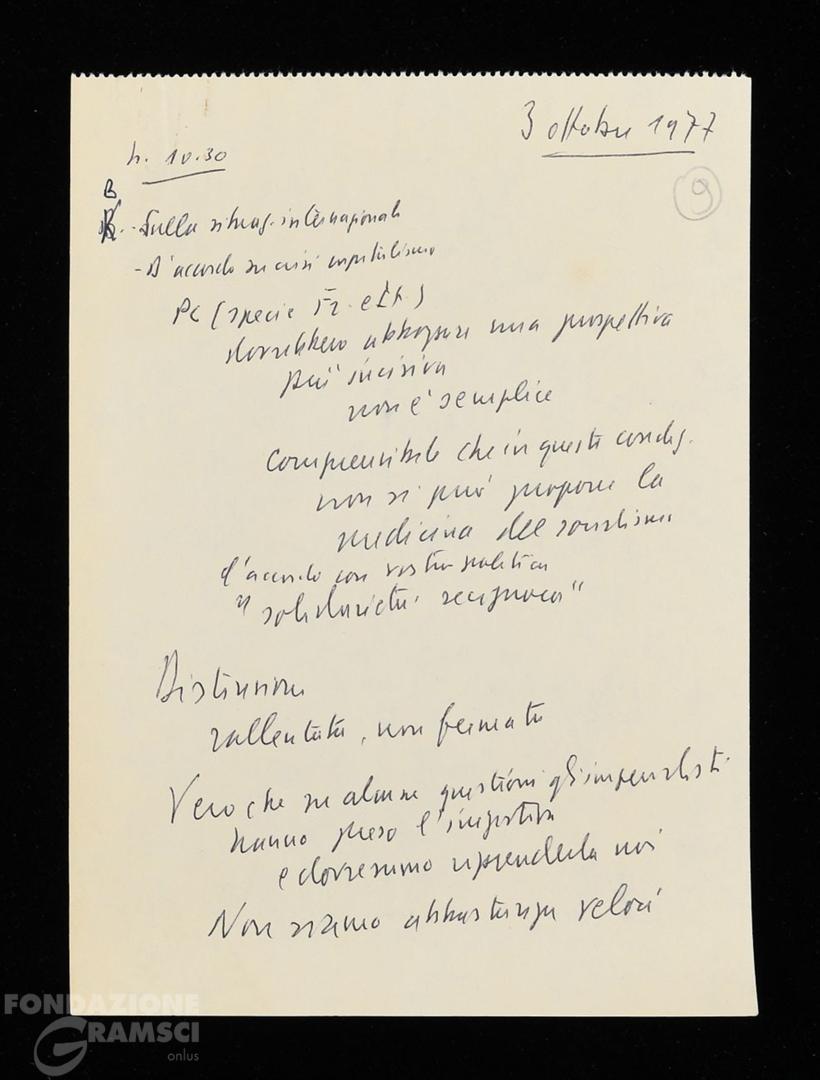 3 ottobre 1977
h. 10.30
9
B
- Sulla situaz. internazionale
- D'accordo su crisi capitalismo
PC (specie Fr. e It.)
dovrebbero abbozzare una prospettiva
più incisiva
non è semplice
Comprensibile che in queste condiz.
non si può proporre la
medicina del socialismo
d'accordo con vostra politica
"solidarietà reciproca"
Distensione
rallentata, non fermata
Vero che su alcune questioni gli imperialisti
hanno preso l'iniziativa
e dovremmo riprenderla noi
Non siamo abbastanza veloci
FONDAZIONE
GRAMSCI
onlus